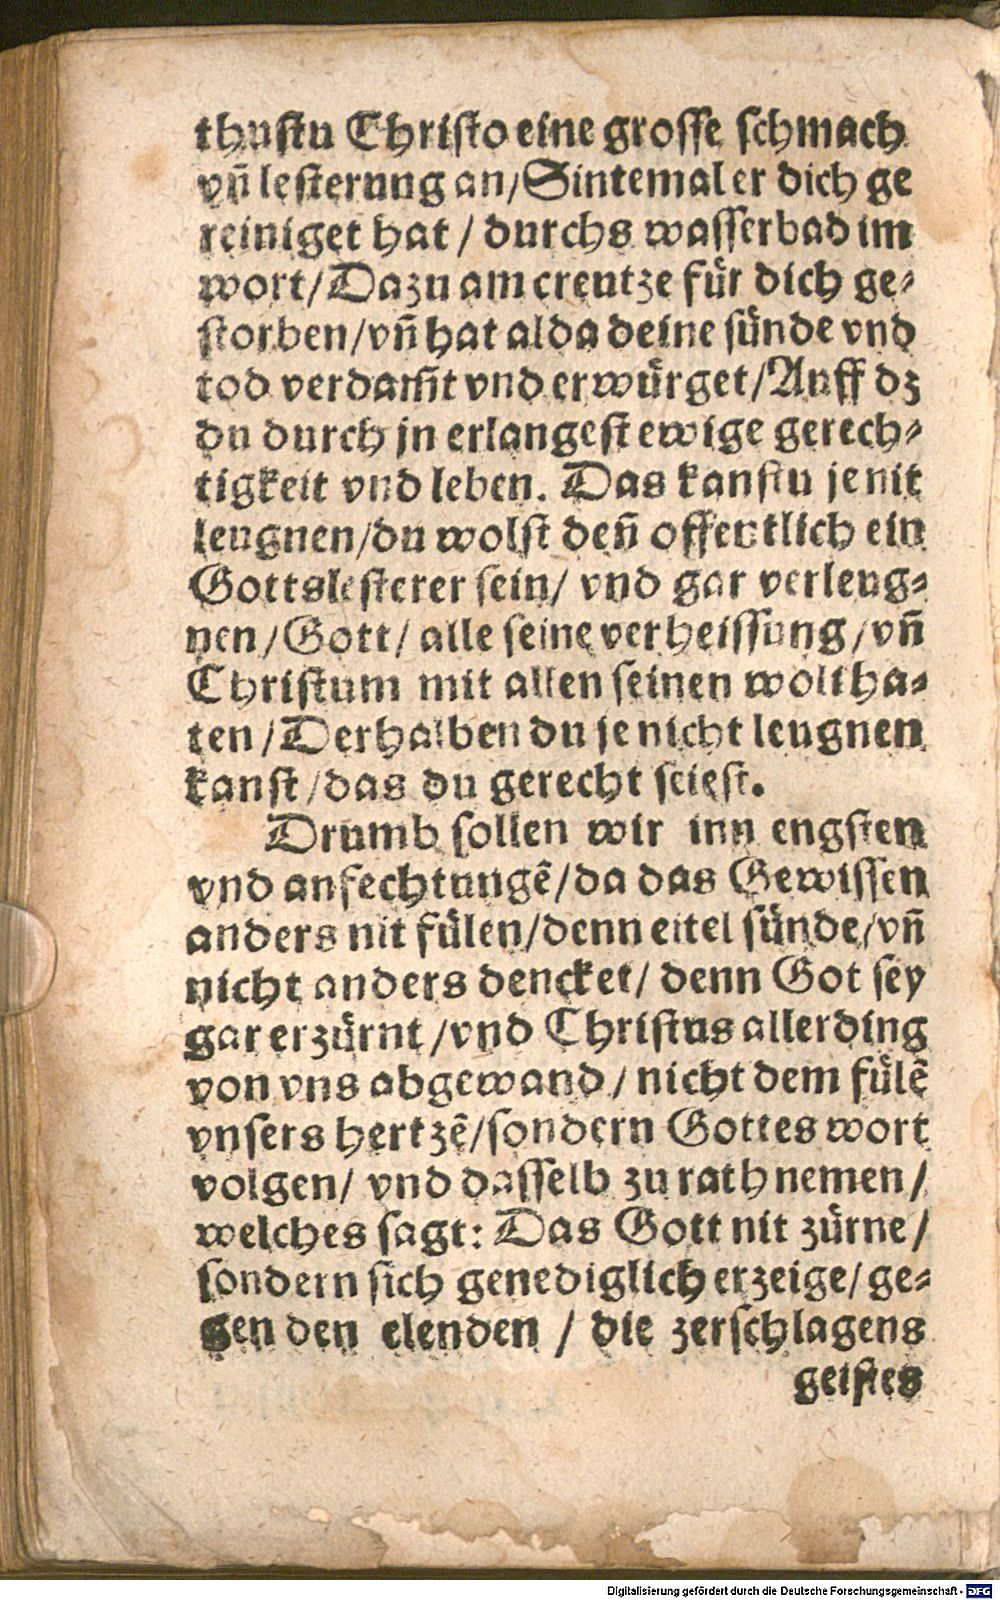 thustu Christo eine grosse schmach
vñ lesterung an/Sintemal er dich ge
reiniget hat / durchs wasserbad im
wort/Dazu am creutze für dich ge⸗
storben/vñ hat alda deine sünde vnd
tod verdam̃t vnd erwürget/Auff dz
du durch jn erlangest ewige gerech⸗
tigkeit vnd leben. Das kanstu je nit
leugnen/du wolst deñ offentlich ein
Gottslesterer sein/ vnd gar verleug⸗
nen/Gott/ alle seine verheissung/vñ
Christum mit allen seinen woltha⸗
ten/Derhalben du je nicht leugnen
kanst/das du gerecht seiest.
Drumb sollen wir inn engsten
vnd anfechtungẽ/da das Gewissen
anders nit fülen/denn eitel sünde/vñ
nicht anders dencket/ denn Got sey
gar erzürnt/vnd Christus allerding
von vns abgewand/ nicht dem fülẽ
vnsers hertzẽ/sondern Gottes wort
volgen/ vnd dasselb zu rath nemen/
welches sagt: Das Gott nit zürne/
sondern sich genediglich erzeige/ ge⸗
gen den elenden / die zerschlagens
geistes
Digitalisierung gefördert durch die Deutsche Forschungsgemeinschaft - DFG